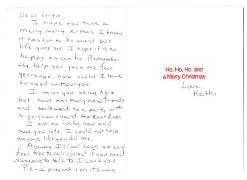 Dear Greg,
I hope you have a
merry, merry X-mas. I know
it has got to be weird but
life goes on. I hope it is as
happy as can be. Remember
the help you gave me few
years ago, how could I have
survived without you.
I miss you being here
but have met many new friends
and
a gorgeous view of the
I am so lucky now and
owe you lots. I could not help
anyone like you did me.
Anyway I'll not
feel free to call collect if you need
someone to talk to I love you
P.S. a present on its way
Ho, Ho, Ho and
a Merry Christmas
Love
Kathi